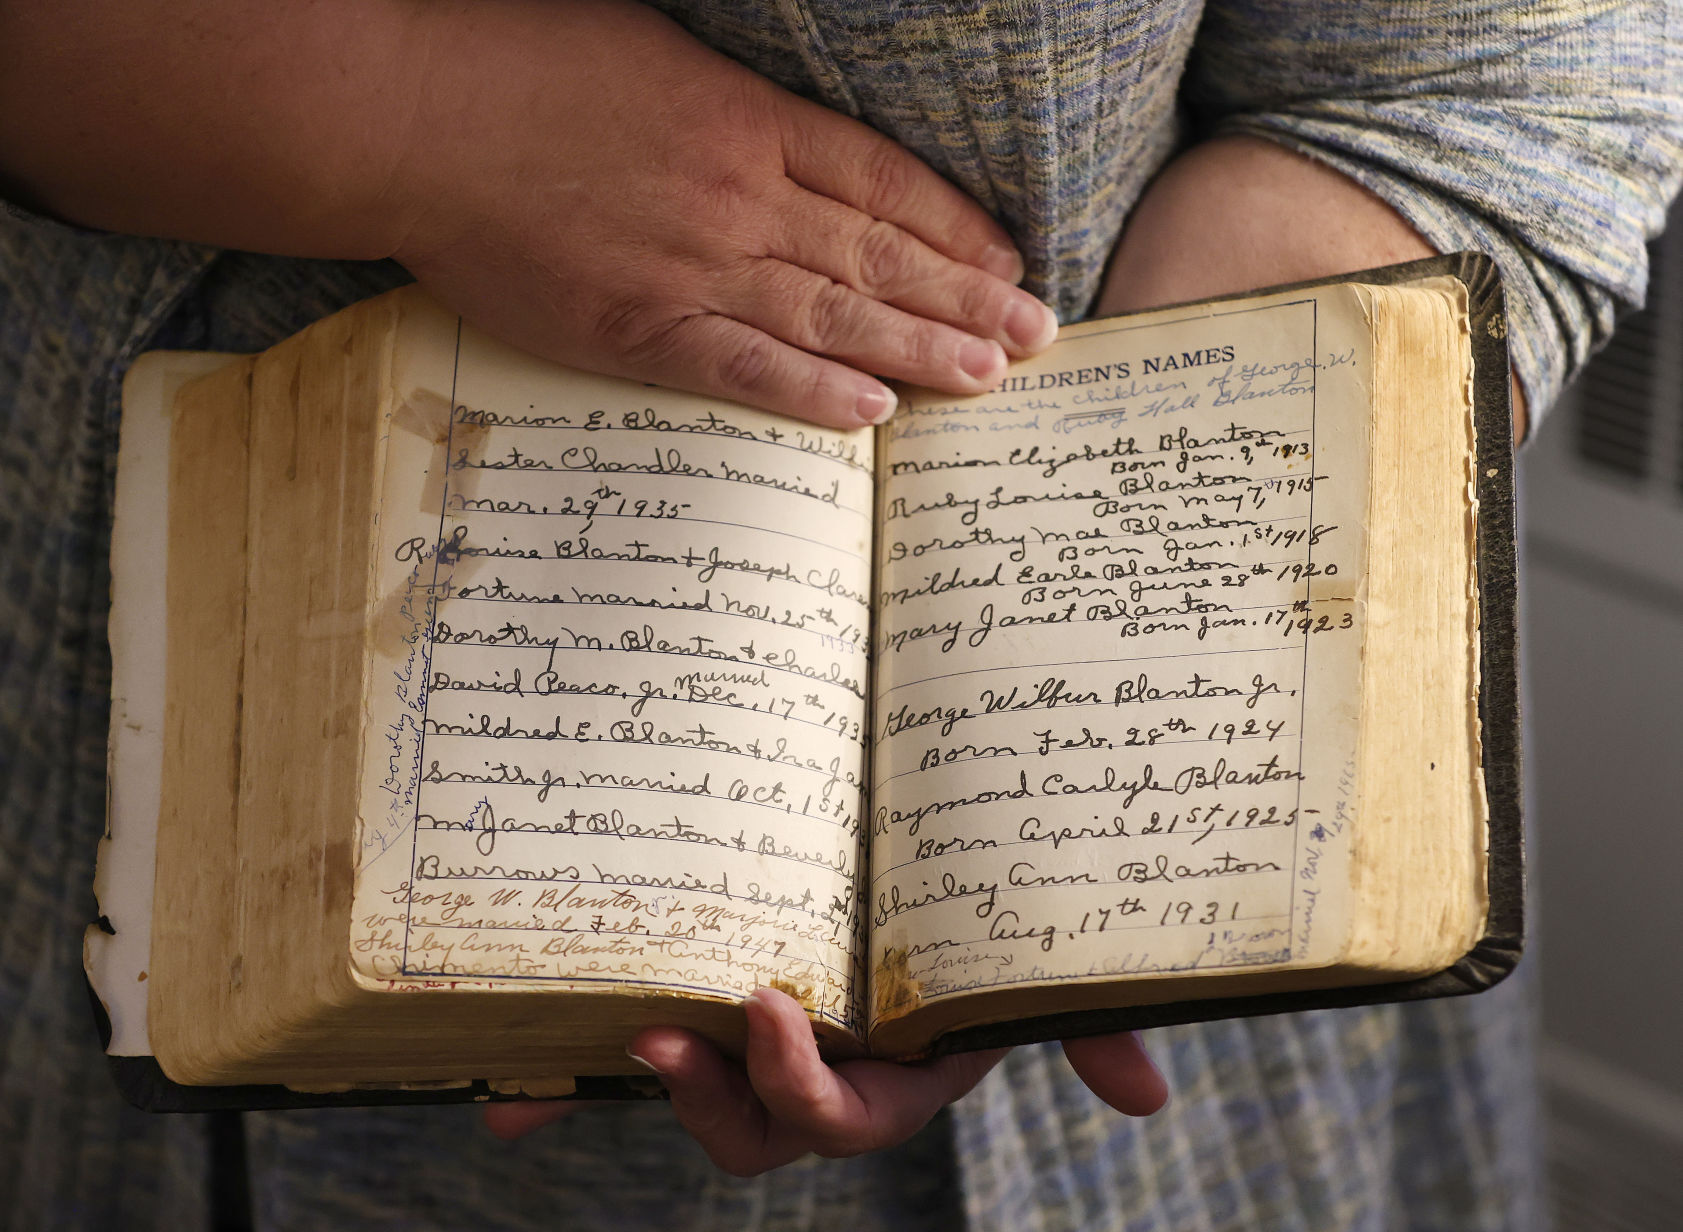 Marion E. Blanton +
Lester Chandler Married
Mar. 29th 1935
Louise Blanton + Joseph
Fortune married Nov. 25th
1935
Dorothy M. Blanton + Charles
married
David Peaco, Jr. Dec. 17th
Mildred E. Blanton + Ira
Smith Jr. married Oct. 1st
Mary Janet Blanton +
Burrows married Sept.
George W. Blanton + Marjorie
were married Feb. 20th 1947
Shirley Ann Blanton + Anthony
Chimento were married
Dorothy Blanton Peaco
married
HILDREN'S NAMES
These are the children of George W.
Blanton and Ruby Hall Blanton
Marion Elizabeth Blanton
Born Jan. 9th 1913
Ruby Louise Blanton
Born May 7, 1915
Dorothy Mae Blanton
Born Jan. 1st 1918
Mildred Earle Blanton
Born June 28th 1920
Mary Janet Blanton
Born Jan. 17th, 1923
George Wilbur Blanton Jr.
Born Feb. 28th 1924
Raymond Carlyle Blanton
Born April 21st, 1925
Shirley Ann Blanton
Born Aug. 17th 1931
Louise
Louise Fortune + Alfred
married Nov.